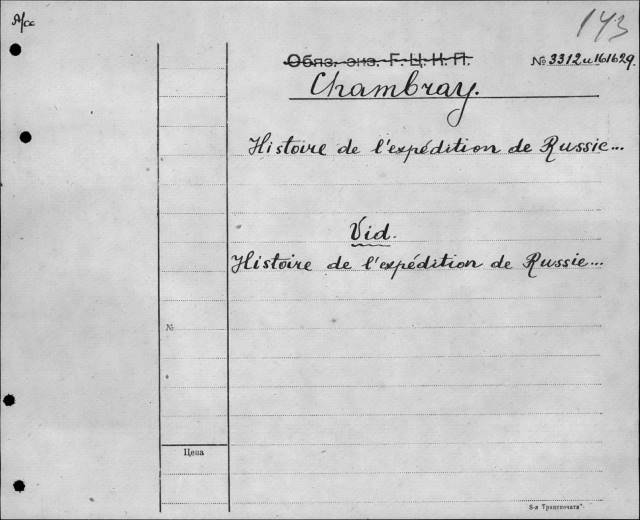 А/сс
143
Обяз. экз. Г. Ц. К. П.
№ 3312 и 161629.
Chambray.
Histoire de l'expédition de Russie...
Vid.
Histoire de l'expédition de Russie...
№
Цена
8-я Транспечати"